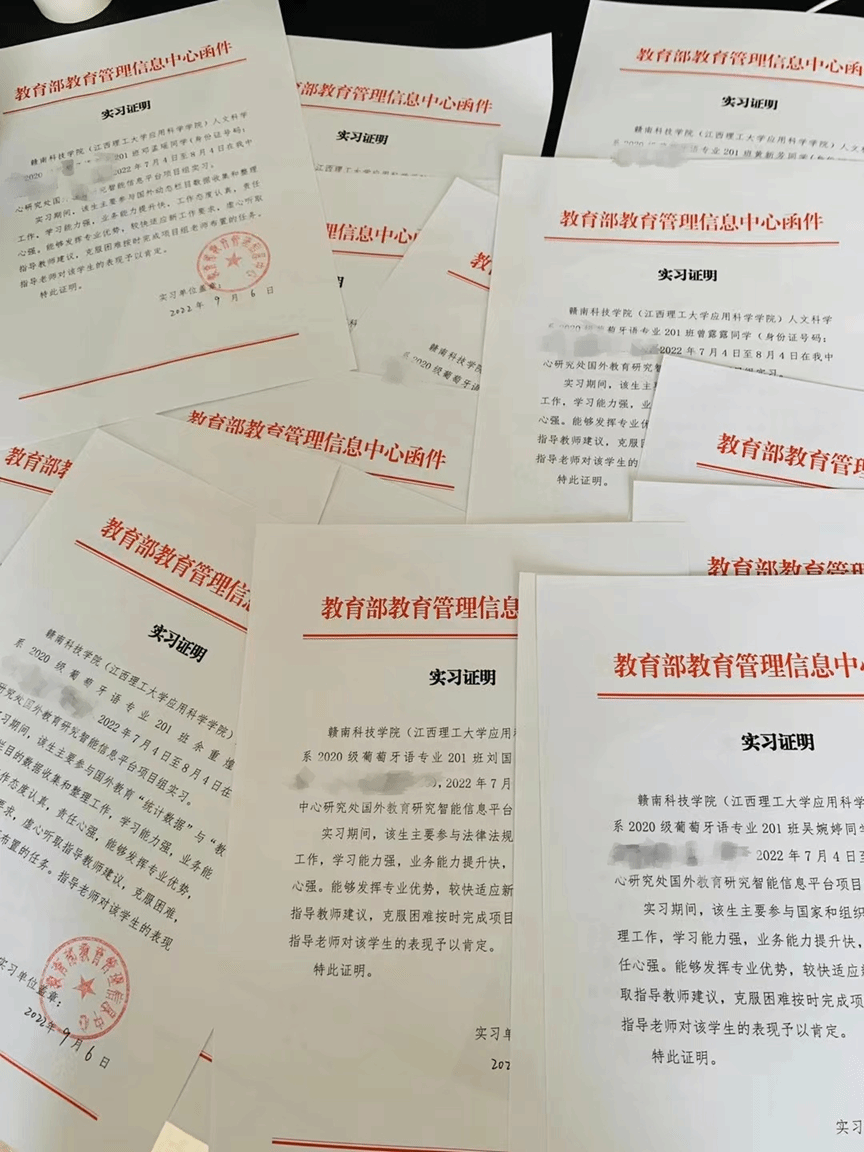 教育部教育管理信息中心函件
实习证明
赣南科技学院（江西理工大学应用科学学院）人文科学
2020 201班邓孟瑶同学（身份证号码：
2022年7月4日至8月4日在我中
心研究处国 智能信息平台项目组实习。
实习期间，该生主要参与国外动态栏目数据收集和整理
工作，学习能力强，业务能力提升快，工作态度认真，责任
心强。能够发挥专业优势，较快适应新工作要求，虚心听取
指导教师建议，克服困难按时完成项目组老师布置的任务。
指导老师对该学生的表现予以肯定。
特此证明。
实习单位盖章：
2022年9月6日
教育部教育管理信息中心
育部教育管理信息中心函件
实习证明
赣南科技学院（江西理工大学应用科学学院）
教育部教育管理信息中心函
实习证明
赣南科技学院（江西理工大学应用科学学院）人文科
系2020 语专业201班黄新芳同学
理信息中心
教
赣南科技学院
系2020级葡萄牙语
教育部教育管理信息中心函件
实习证明
赣南科技学院（江西理工大学应用科学学院）人文科学
系2020级葡萄牙语专业201班曾露露同学（身份证号码：
2022年7月4日至8月4日在我中
心研究处国外教育研究智
组实习。
实习期间，该生主
工作，学习能力强，业
心强。能够发挥专业优
指导教师建议，克服
指导老师对该学生的
特此证明。
教育部教育管理
教育部教育管理信息中心函件
教育部
教育部教育管理信息
实习证明
赣南科技学院（江西理工大学应用科学学院）
系2020级葡萄牙语专业201班余重煌
2022年7月4日至8月4日在
研究处国外教育研究智能信息平台项目组实习。
习期间，该生主要参与国外教育“统计数据”与“教
栏目的数据收集和整理工作，学习能力强，业务能
作态度认真，责任心强，能够发挥专业优势，
要求，虚心听取指导教师建议，克服困难，
布置的任务。指导老师对该学生的表现
实习单位盖章：
2022年9月6日
教育部教育管理信息中心
教育部教育管理信息
实习证明
赣南科技学院（江西理工大学应用
系2020级葡萄牙语专业201班刘国
，2022年7月
中心研究处国外教育研究智能信息平台
实习期间，该生主要参与法律法规
工作，学习能力强，业务能力提升快，
心强。能够发挥专业优势，较快适应新
指导教师建议，克服困难按时完成项目
指导老师对该学生的表现予以肯定。
特此证明。
实习单
202
教育部教育管理
教育部教育管理信息中心
实习证明
赣南科技学院（江西理工大学应用科学
系2020级葡萄牙语专业201班吴婉婷同学
2022年7月4日至
心研究处国外教育研究智能信息平台项目
实习期间，该生主要参与国家和组织
理工作，学习能力强，业务能力提升快，
任心强。能够发挥专业优势，较快适应
取指导教师建议，克服困难按时完成项
指导老师对该学生的表现予以肯定。
特此证明。
实习